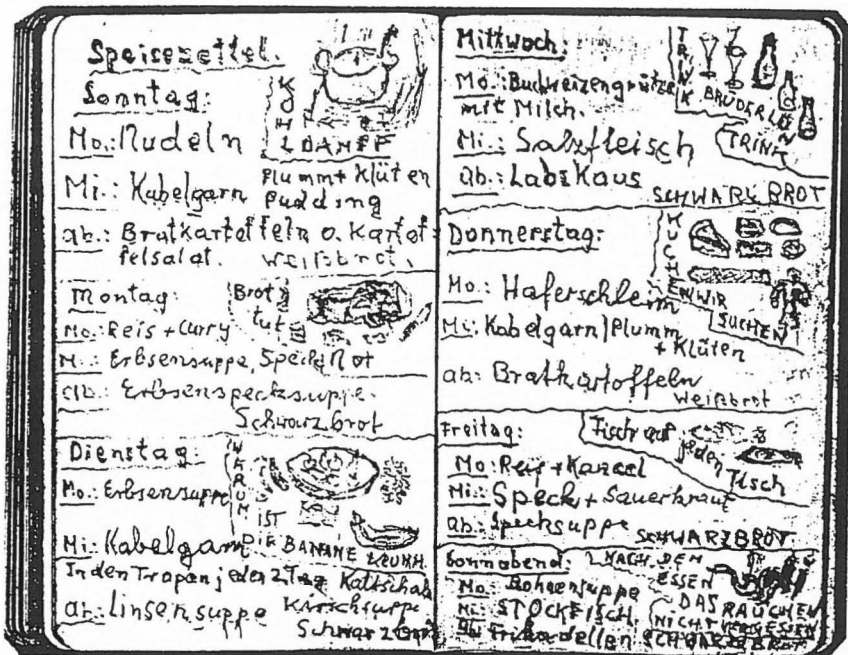 Speisezettel.
Sonntag:
Mo.: Nudeln
DAMPF
Mi.: Kabelgarn Plumm + Klüten
Pudding
ab.: Bratkartoffeln o. Kartof-
felsalat. Weißbrot.
Montag:
Brot
tut
Mo.: Reis + Curry
Mi.: Erbsensuppe, Speck, Rot
ab.: Erbsenspecksuppe.
Schwarzbrot
Dienstag:
WARUM
IST
DIE BANANE KRUMM.
Mo.: Erbsensuppe
Mi.: Kabelgarn
In den Tropen jeden 2 Tag Kaltschale
Kirschsuppe
ab.: Linsensuppe
Schwarzbrot
Mittwoch:
TRINK
BRÜDERLEIN
TRINK
Mo.: Buchweizengrütze
mit Milch.
Mi.: Salzfleisch
ab.: Labskaus
SCHWARZBROT
Donnerstag:
KUCHEN WIR
SUCHEN
Mo.: Haferschleim
Mi.: Kabelgarn/Plumm
+ Klüten
ab.: Bratkartoffeln
Weißbrot
Freitag:
Fisch auf
jeden
Tisch
Mo: Reis + Kaneel
Mi: Speck + Sauerkraut
ab.: Specksuppe
SCHWARZBROT
Sonnabend:
NACH DEM
ESSEN
DAS RAUCHEN
NICHT VERGESSEN
Mo.: Bohnensuppe
Mi: STOCKFISCH.
ab: Frikadellen SCHWARZBROT.